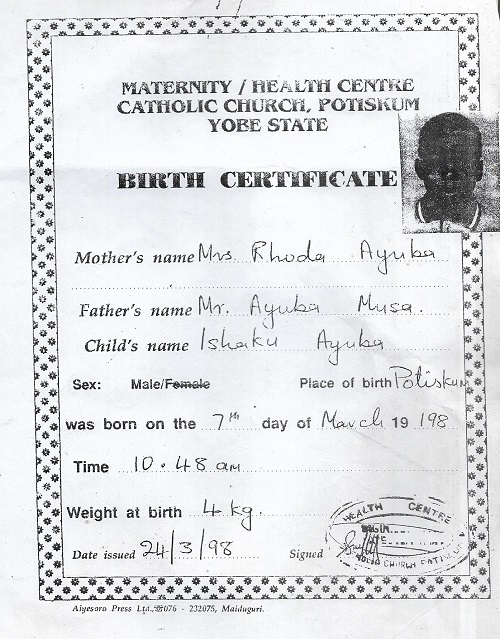 MATERNITY / HEALTH CENTRE
CATHOLIC CHURCH, POTISKUM
YOBE STATE
BIRTH CERTIFICATE
Mother's name Mrs. Rhoda Ayuba
Father's name Mr. Ayuba Musa.
Child's name Ishaku Ayuba
Sex: Male/Female Place of birth Potiskum
was born on the 7th day of March 19 198
Time 10.48 am
Weight at birth 4 kg.
Date issued 24/3/98 Signed
HEALTH CENTRE
CHURCH POTISKUM
Aiyesoro Press Ltd., 076 - 232075, Maiduguri.